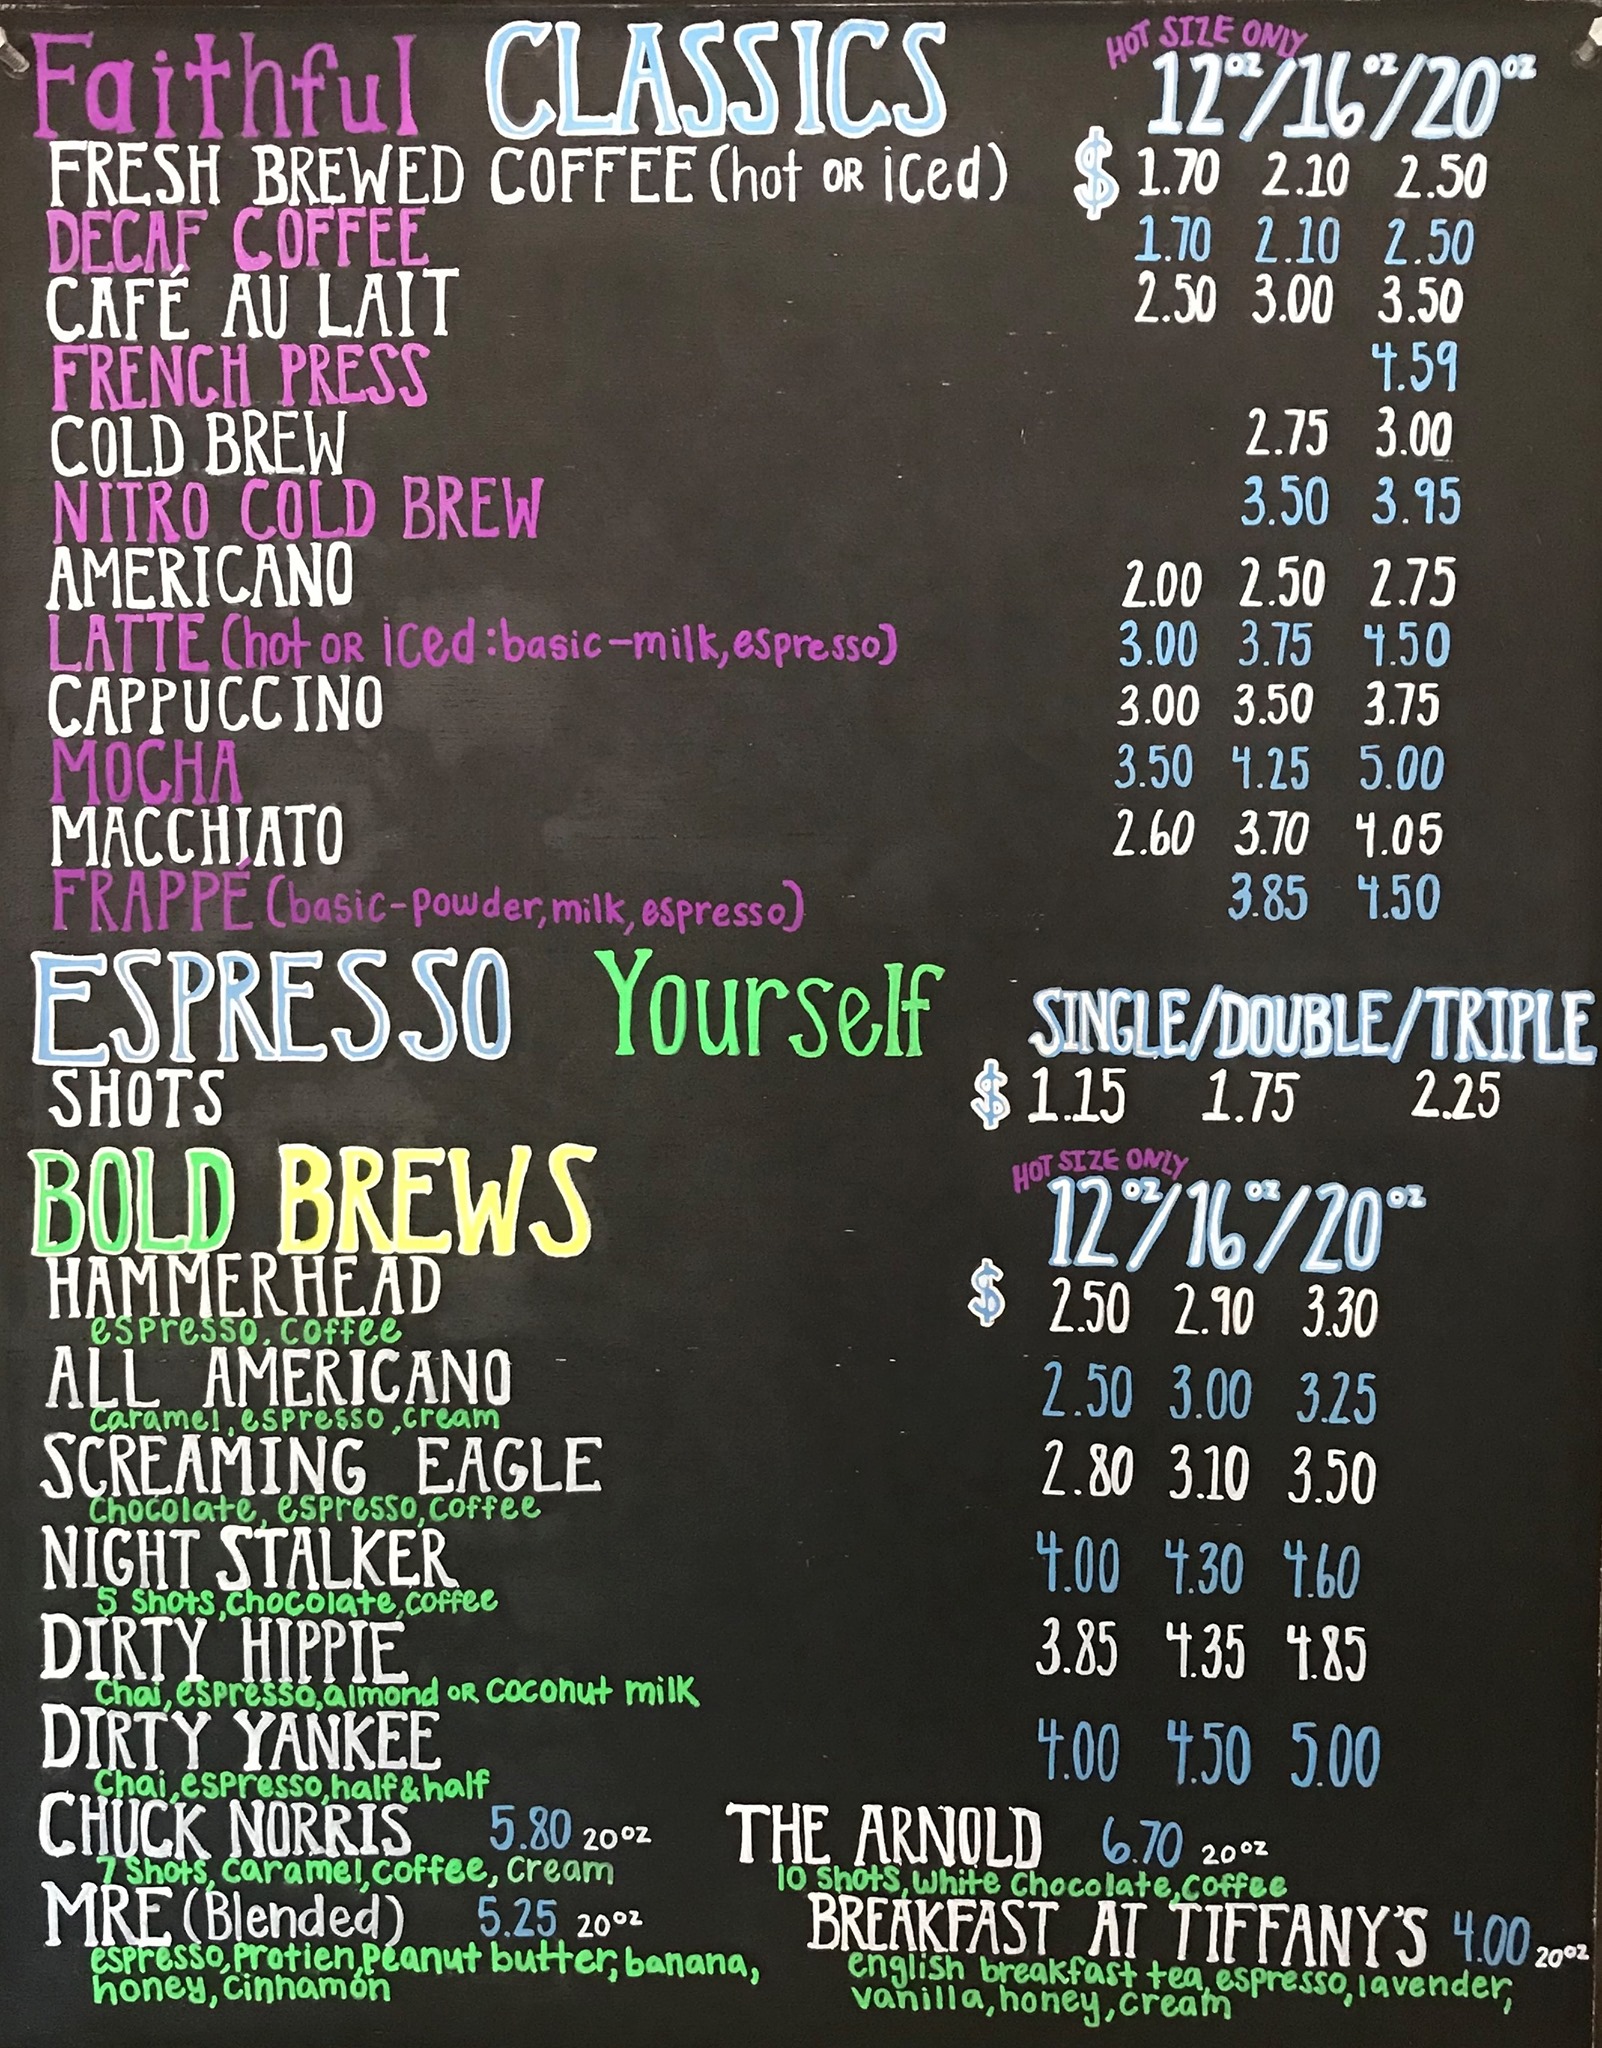 Faithful CLASSICS HOT SIZE ONLY 12oz/16oz/20oz
FRESH BREWED COFFEE (hot OR iced) $ 1.70 2.10 2.50
DECAF COFFEE 1.70 2.10 2.50
CAFÉ AU LAIT 2.50 3.00 3.50
FRENCH PRESS 4.59
COLD BREW 2.75 3.00
NITRO COLD BREW 3.50 3.95
AMERICANO 2.00 2.50 2.75
LATTE (hot OR iced: basic-milk, espresso) 3.00 3.75 4.50
CAPPUCCINO 3.00 3.50 3.75
MOCHA 3.50 4.25 5.00
MACCHIATO 2.60 3.70 4.05
FRAPPÉ (basic-powder, milk, espresso) 3.85 4.50
ESPRESSO Yourself SINGLE/DOUBLE/TRIPLE
SHOTS $ 1.15 1.75 2.25
BOLD BREWS HOT SIZE ONLY 12oz/16oz/20oz
HAMMERHEAD $ 2.50 2.90 3.30
espresso, coffee
ALL AMERICANO 2.50 3.00 3.25
caramel, espresso, cream
SCREAMING EAGLE 2.80 3.10 3.50
chocolate, espresso, coffee
NIGHT STALKER 4.00 4.30 4.60
5 shots, chocolate, coffee
DIRTY HIPPIE 3.85 4.35 4.85
chai, espresso, almond OR coconut milk
DIRTY YANKEE 4.00 4.50 5.00
chai, espresso, half & half
CHUCK NORRIS 5.80 20oz
7 shots, caramel, coffee, cream
THE ARNOLD 6.70 20oz
10 shots, white chocolate, coffee
MRE (Blended) 5.25 20oz
espresso, protien, peanut butter, banana,
honey, cinnamon
BREAKFAST AT TIFFANY'S 4.00 20oz
english breakfast tea, espresso, lavender,
vanilla, honey, cream